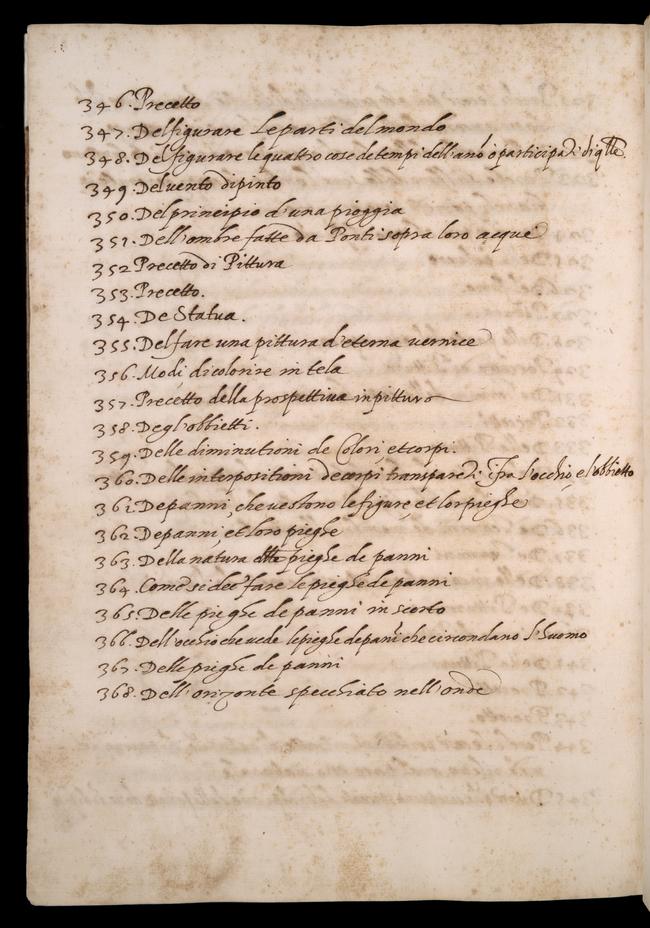 346. Precetto
347. Del figurare le parti del mondo
348. Del figurare le quattro cose de tempi dell'ano ò participati di qlle.
349. Del vento dipinto
350. Del principio d'una pioggia
351. Dell'ombre fatte da Ponti sopra loro acque
352 Precetto di Pittura
353. Precetto.
354. De Statua.
355. Del fare una pittura d'eterna vernice
356. Modi di colorire in tela
357. Precetto della prospettiva in pittura
358. Degl'obbietti.
359. Delle diminutioni de Colori et corpi.
360. Delle interpositioni de corpi transpareti fra l'occhio e l'obbietto
361. De panni, che vestono le figure et lor pieghe
362. De panni, et loro pieghe
363. Della natura delle pieghe de panni
364. Come si dee' fare le pieghe de panni
365. Delle pieghe de panni in scorto
366. Dell'occhio che vede le pieghe de pani che circondano l'huomo
367. Delle pieghe de panni
368. Dell'orizonte specchiato nell'onde